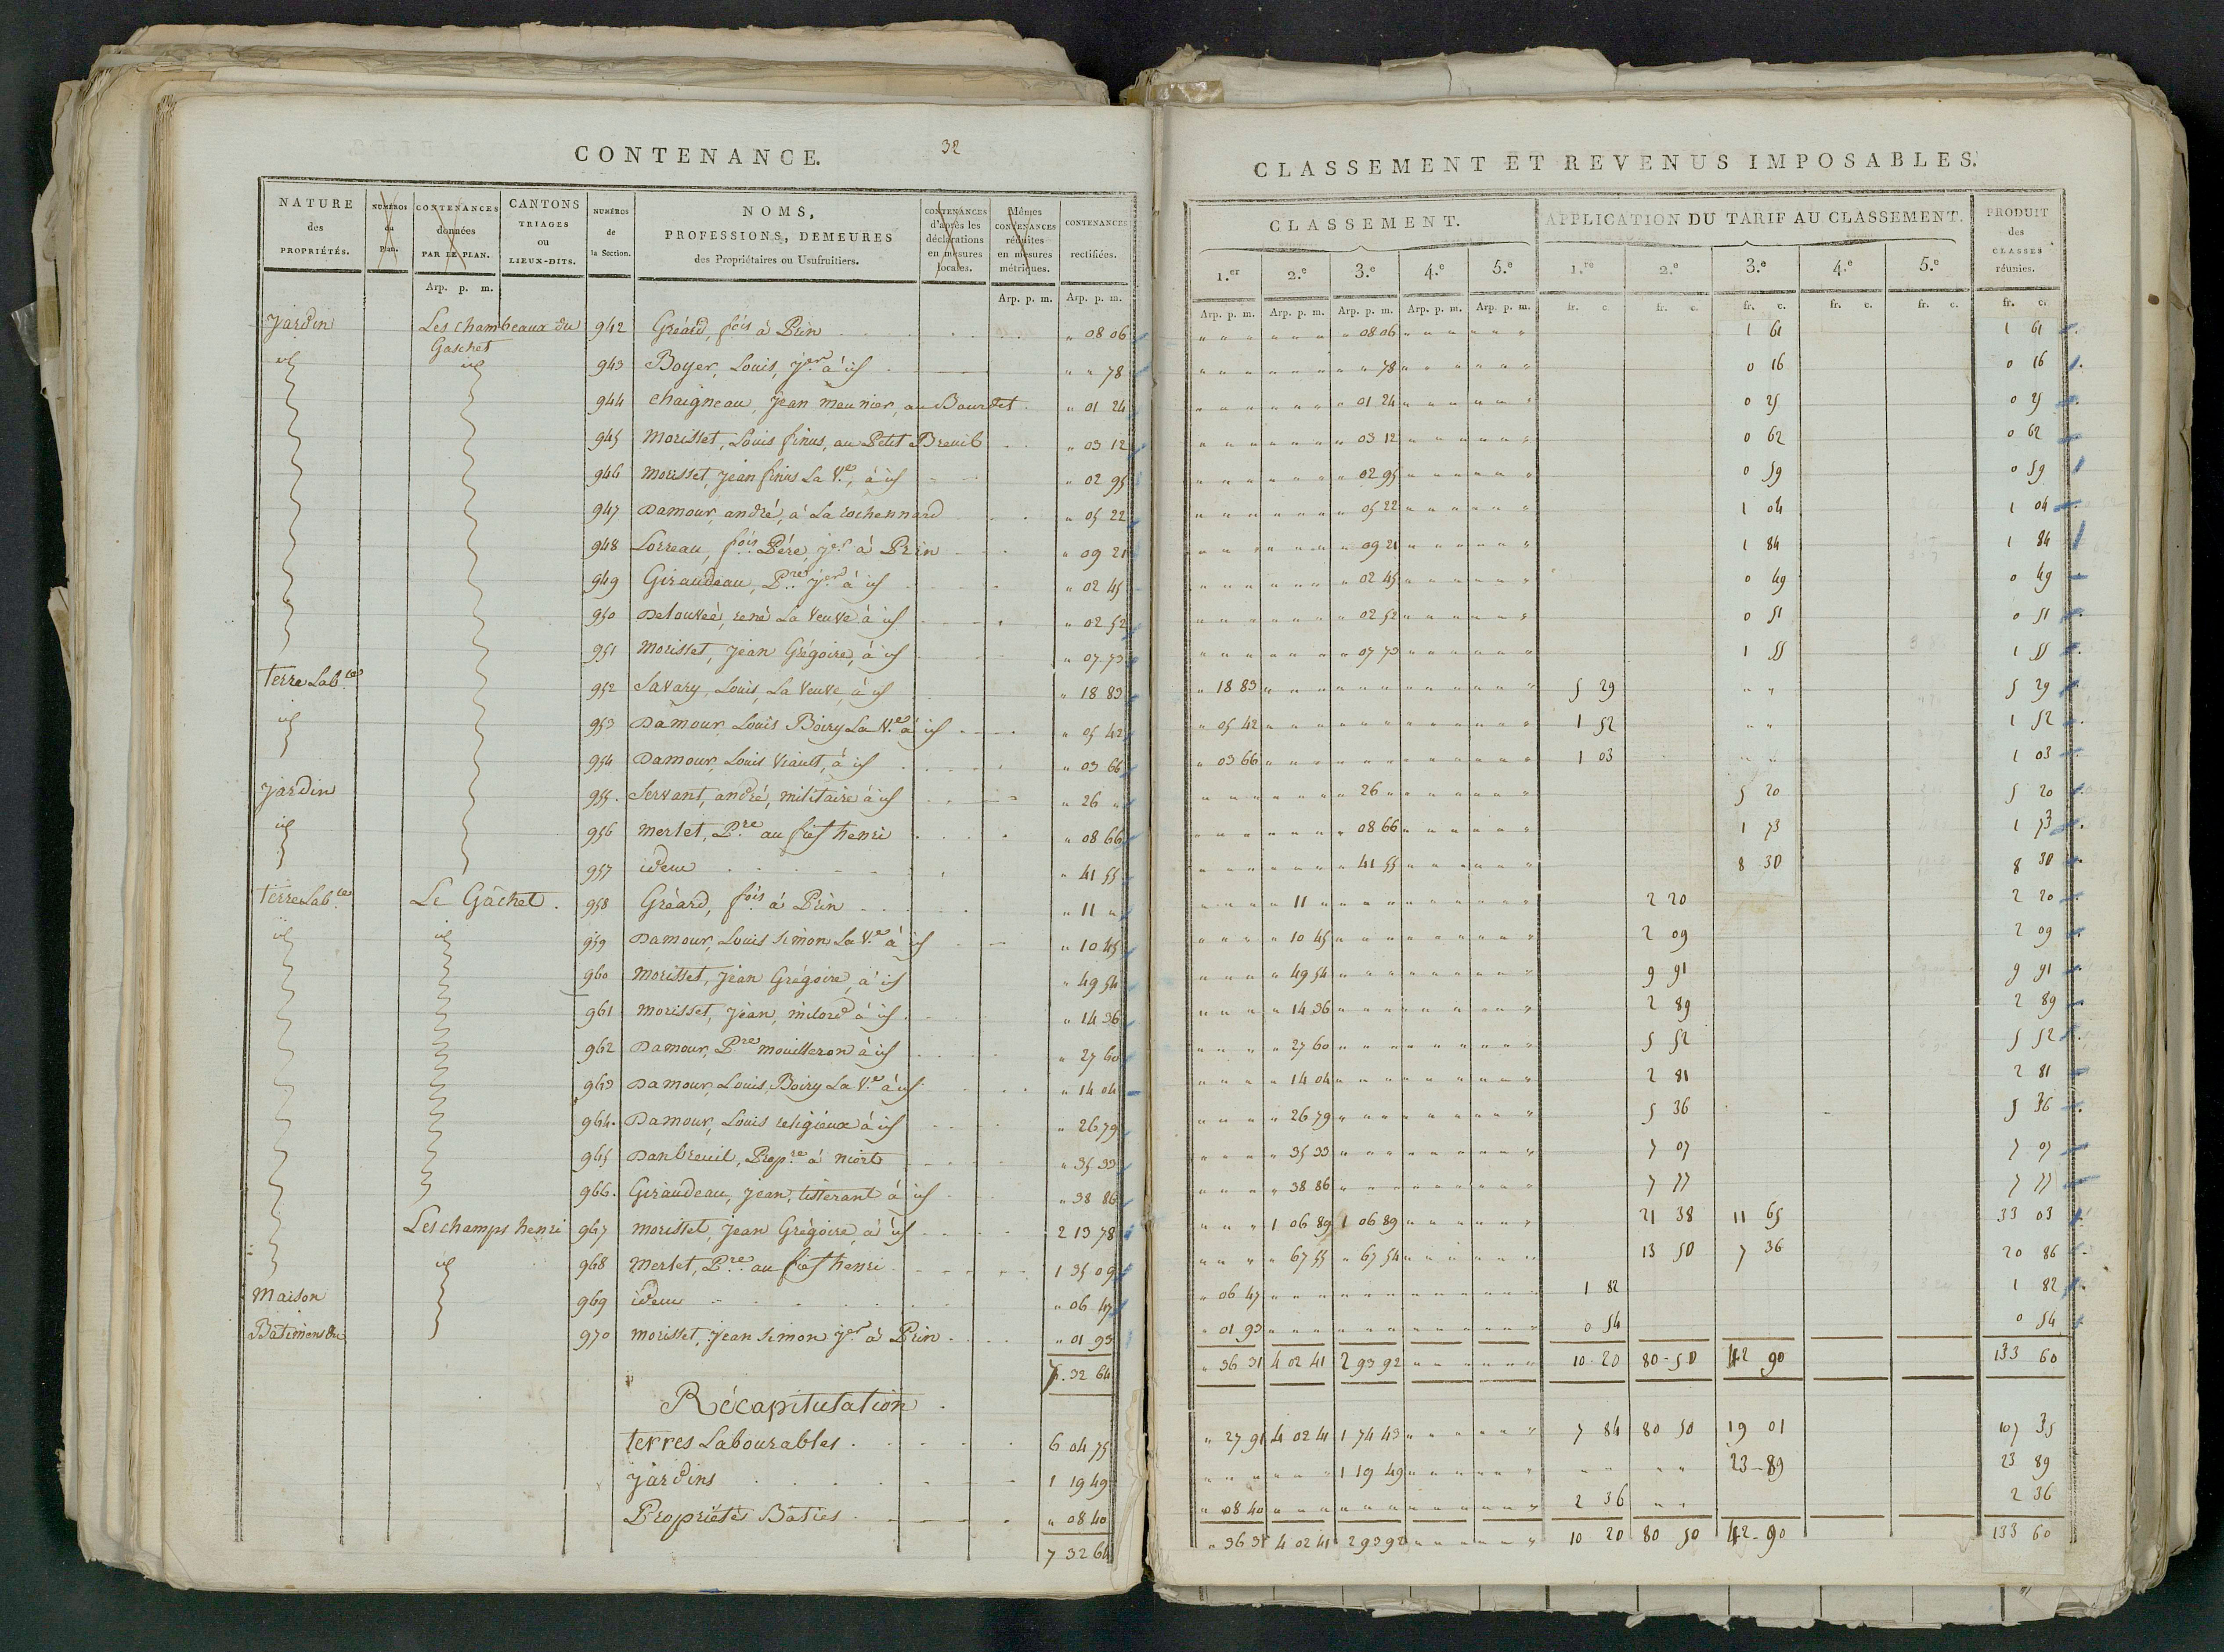 CONTENANCE.
32
NATURE des PROPRIÉTÉS.
NUMÉROS du Plan.
CONTENANCES données PAR LE PLAN.
CANTONS TRIAGES ou LIEUX-DITS.
NUMÉROS de la Section.
NOMS, PROFESSIONS, DEMEURES des Propriétaires ou Usufruitiers.
CONTENANCES d'après les déclarations en mesures locales.
Mêmes CONTENANCES réduites en mesures métriques.
CONTENANCES rectifiées.
Arp. p. m. Arp. p. m. Arp. p. m.
Jardin Les chambeaux du Gaschet 942 Gréard, fois à Prin " 08 06
id id 943 Boyer, Louis, Jer à id " " 78
944 Chaigneau, Jean meunier, au Bourdet " 01 24
945 Morisset, Louis finus, au Petit Breuil " 03 12
946 Morisset, Jean finus La Ve, à id " 02 95
947 Damour, andré, à La rochennard " 05 22
948 Lorreau, fois Père, Jer à Prin " 09 21
949 Giraudeau, Pre Jer à id " 02 45
950 Delouvée, rené La Veuve à id " 02 52
951 Morisset, Jean Grégoire, à id " 07 73
Terre Lable 952 Savary, Louis, La Veuve, à id " 18 89
id 953 Damour, Louis Boiry La Ve à id " 05 42
954 Damour, Louis Viault, à id " 03 66
Jardin 955. Servant, andré, militaire à id " 26 "
id 956 Merlet, Pre au fief henri " 08 66
957 idem " 41 55
Terre Lable Le Gâchet. 958 Gréard, fois à Prin " 11 "
id id 959 Damour, Louis Simon La Ve à id " 10 45
960 Morisset, Jean Grégoire, à id " 49 54
961 Morisset, Jean, milord à id " 14 36
962 Damour, Pre mouilleron à id " 27 60
963 Damour, Louis, Boiry La Ve à id " 14 04
964. Damour, Louis religieux à id " 26 79
965 Danbreuil, Propre à niort " 35 33
966. Giraudeau, Jean, tisserant à id " 38 86
Les champs henri 967 Morisset, Jean Grégoire, à id 2 13 78
id 968 Merlet, Pre au fief henri 1 35 09
Maison 969 idem " 06 47
Bâtiment 970 Morisset, Jean Simon Jer à Prin " 01 93
7. 32 64
Récapitulation
terres Labourables 6 04 75
Jardins 1 19 49
Propriétés Bâties " 08 40
7 32 64
CLASSEMENT ET REVENUS IMPOSABLES.
CLASSEMENT. APPLICATION DU TARIF AU CLASSEMENT. PRODUIT des CLASSES réunies.
1.er 2.e 3.e 4.e 5.e 1.re 2.e 3.e 4.e 5.e
Arp. p. m. Arp. p. m. Arp. p. m. Arp. p. m. Arp. p. m. fr. c. fr. c. fr. c. fr. c. fr. c. fr. c.
" 08 06 1 61 1 61
" " 78 0 16 0 16
" 01 24 0 25 0 25
" 03 12 0 62 0 62
" 02 95 0 59 0 59
" 05 22 1 04 1 04
" 09 21 1 84 1 84
" 02 45 0 49 0 49
" 02 52 0 51 0 51
" 07 73 1 55 1 55
" 18 89 5 29 " " 5 29
" 05 42 1 52 " " 1 52
" 03 66 1 03 " " 1 03
" 26 " 5 20 5 20
" 08 66 1 73 1 73
" 41 55 8 30 8 30
" 11 " 2 20 2 20
" 10 45 2 09 2 09
" 49 54 9 91 9 91
" 14 36 2 89 2 89
" 27 60 5 52 5 52
" 14 04 2 81 2 81
" 26 79 5 36 5 36
" 35 33 7 07 7 07
" 38 86 7 77 7 77
1 06 89 1 06 89 21 38 11 65 33 03
" 67 55 " 67 54 13 50 7 36 20 86
" 06 47 1 82 1 82
" 01 93 0 54 0 54
" 36 31 4 02 41 2 93 92 10-20 80-50 42 90 133 60
" 27 91 4 02 41 1 74 43 7 84 80 50 19 01 107 35
1 19 49 " " " " 23-89 23 89
" 08 40 2 36 " " 2 36
" 36 31 4 02 41 2 93 92 10 20 80 50 42-90 133 60